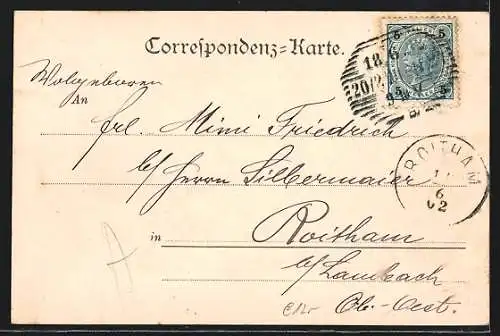 Correspondenz=Karte.
An
Frl. Mimi Friedrich
b/ Herrn Silbermaier
in Roitham
b/ Lambach
Ob.-Oest.
5 5
5 5
18
20/2
ROITHAM
6
02